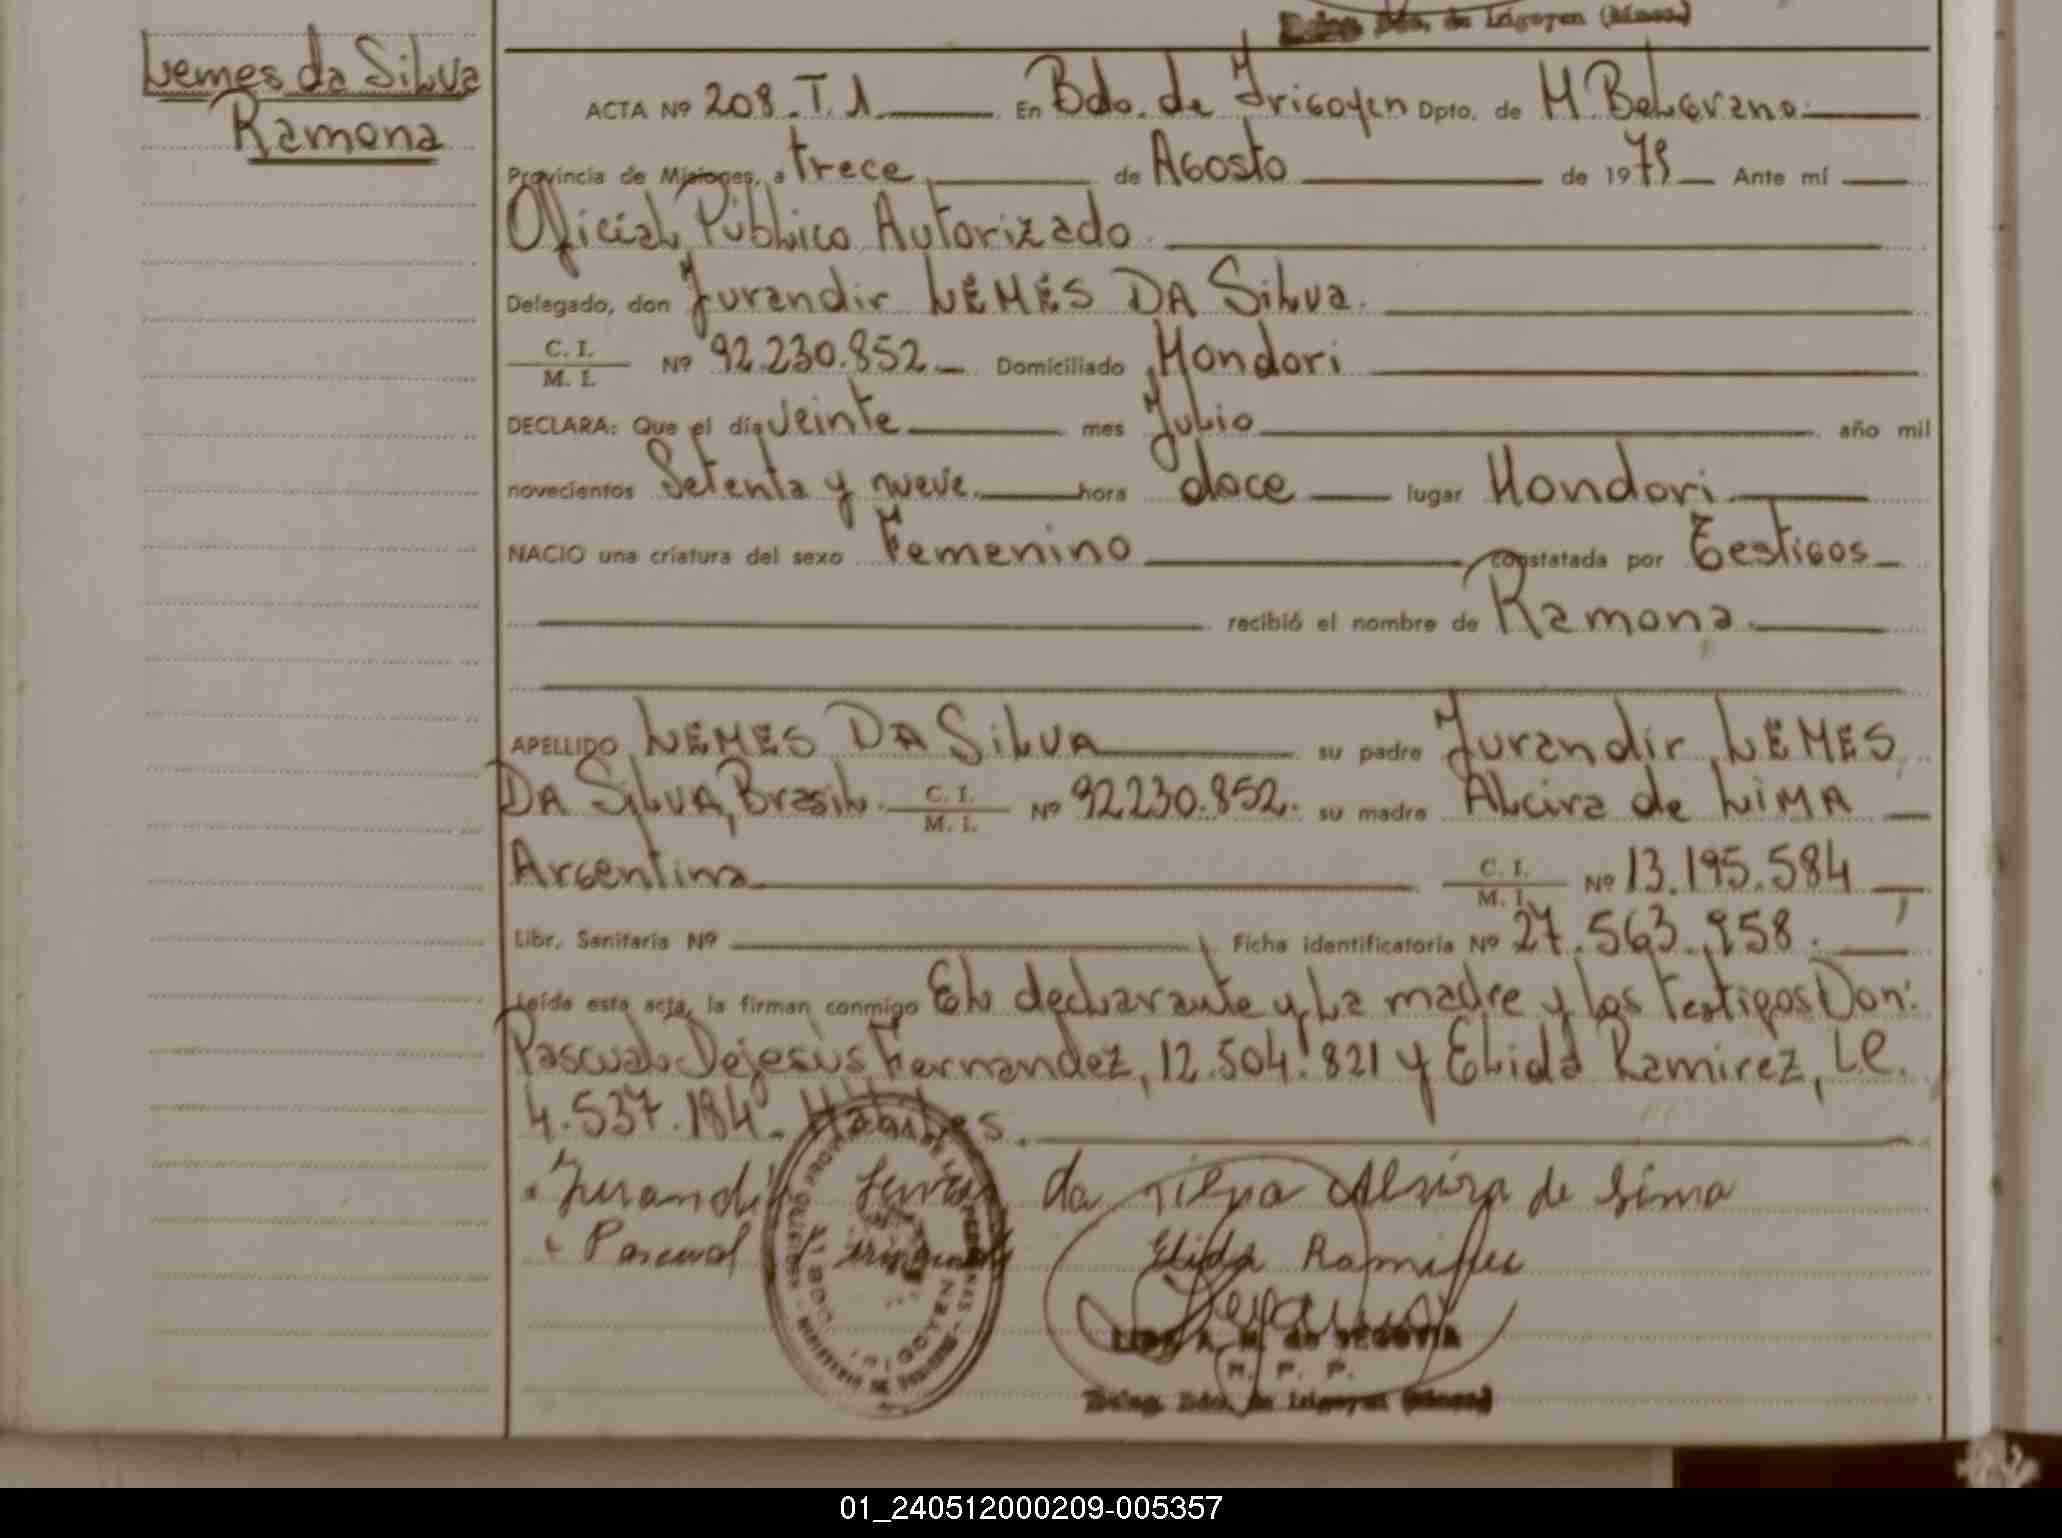 Lemes da Silva
Ramona
Deleg. Bdo. de Irigoyen (Mnes.)
ACTA Nº 208. T. 1 En Bdo. de Irigoyen Dpto. de M. Belgrano.
Provincia de Misiones, a trece de Agosto de 1979 Ante mí
Oficial Público Autorizado
Delegado, don Jurandir LEMES DA Silva.
C. I.
M. I. Nº 92.230.852 Domiciliado Mondori
DECLARA: Que el día veinte mes Julio año mil
novecientos Setenta y nueve hora doce lugar Mondori
NACIO una criatura del sexo Femenino constatada por Testigos
recibió el nombre de Ramona.
APELLIDO LEMES DA SilVA su padre Jurandir LEMES
DA SilVA, Brasil. C. I. M. I. Nº 92230.852. su madre Alcira de LiMA
Argentina C. I. M. I. Nº 13.195.584
Libr. Sanitaria Nº Ficha identificatoria Nº 27.563.958.
Leída esta acta, la firman conmigo El declarante y La madre y los testigos Don:
Pascual Dejesús Fernandez, 12.504.821 y Elida Ramirez, L.C.
4.537.184. Hábiles.
Jurandir Lemes da Silva Alsira de Lima
Pascual Elida Ramirez
A. M. de SEGOVIA
M. P. P.
Deleg. Bdo. de Irigoyen (Mnes.)
01_240512000209-005357